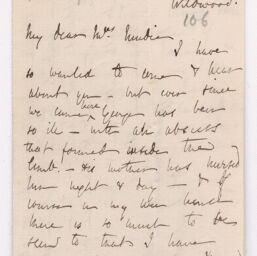 Wildwood.
106
My dear Mrs Mundie
I have
so wanted to come & hear
about you - but ever since
we came here George has been
so ill - with an abscess
that formed inside the
limb - His mother has nursed
him night & day - & of
course in my own house
there is so much to be
seen to that I have